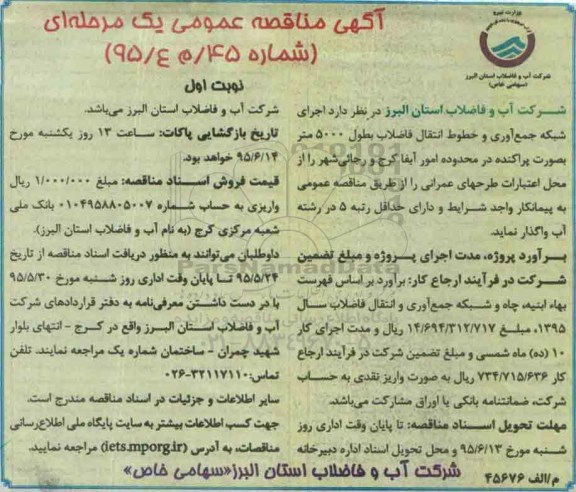 آگهی مناقصه عمومی یک مرحله‌ای
(شماره ۴۵/م ع/۹۵)
نوبت اول
وزارت نیرو
شرکت آب و فاضلاب استان البرز
(سهامی خاص)
شرکت آب و فاضلاب استان البرز در نظر دارد اجرای
شبکه جمع‌آوری و خطوط انتقال فاضلاب بطول ۵۰۰۰ متر
بصورت پراکنده در محدوده امور آبفا کرج و رجائی‌شهر را از
محل اعتبارات طرحهای عمرانی را از طریق مناقصه عمومی
به پیمانکار واجد شرایط و دارای حداقل رتبه ۵ در رشته
آب واگذار نماید.
برآورد پروژه، مدت اجرای پروژه و مبلغ تضمین
شرکت در فرآیند ارجاع کار: برآورد بر اساس فهرست
بهاء ابنیه، چاه و شبکه جمع‌آوری و انتقال فاضلاب سال
۱۳۹۵، مبلغ ۱۴/۶۹۴/۳۱۲/۷۱۷ ریال و مدت اجرای کار
۱۰ (ده) ماه شمسی و مبلغ تضمین شرکت در فرآیند ارجاع
کار ۷۳۴/۷۱۵/۶۳۶ ریال به صورت واریز نقدی به حساب
شرکت، ضمانتنامه بانکی یا اوراق مشارکت می‌باشد.
مهلت تحویل اسناد مناقصه: تا پایان وقت اداری روز
شنبه مورخ ۹۵/۶/۱۳ و محل تحویل اسناد اداره دبیرخانه
شرکت آب و فاضلاب استان البرز می‌باشد.
تاریخ بازگشایی پاکات: ساعت ۱۳ روز یکشنبه مورخ
۹۵/۶/۱۴ خواهد بود.
قیمت فروش اسناد مناقصه: مبلغ ۱/۰۰۰/۰۰۰ ریال
واریزی به حساب شماره ۰۱۰۴۹۵۸۸۰۵۰۰۷ بانک ملی
شعبه مرکزی کرج (به نام آب و فاضلاب استان البرز).
داوطلبان می‌توانند به منظور دریافت اسناد مناقصه از تاریخ
۹۵/۵/۲۴ تا پایان وقت اداری روز شنبه مورخ ۹۵/۵/۳۰
با در دست داشتن معرفی‌نامه به دفتر قراردادهای شرکت
آب و فاضلاب استان البرز واقع در کرج - انتهای بلوار
شهید چمران - ساختمان شماره یک مراجعه نمایند. تلفن
تماس: ۳۲۱۱۷۱۱۰-۰۲۶
سایر اطلاعات و جزئیات در اسناد مناقصه مندرج است.
جهت کسب اطلاعات بیشتر به سایت پایگاه ملی اطلاع‌رسانی
مناقصات، به آدرس (iets.mporg.ir) مراجعه نمایید.
م/الف ۴۵۶۷۶
شرکت آب و فاضلاب استان البرز«سهامی خاص»